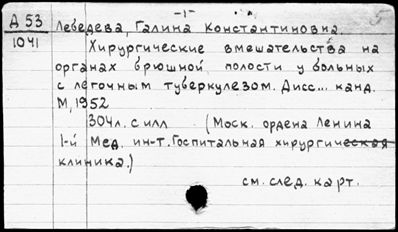 -1-
Д 53 Лебедева, Галина Константиновна.
1041 Хирургические вмешательства на
органах брюшной полости у больных
с легочным туберкулезом. Дисс... канд.
М, 1952
304л. с илл (Моск. ордена Ленина
1-й Мед. ин-т. Госпитальная хирургическая
клиника.)
см. след. карт.